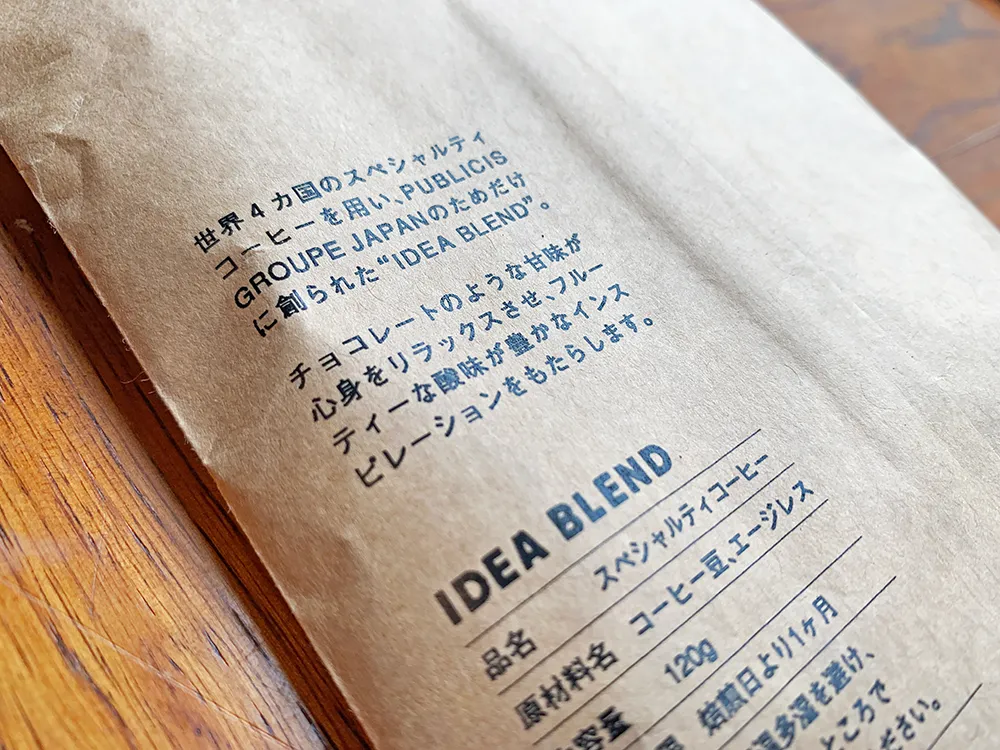 世界4カ国のスペシャルティ
コーヒーを用い、PUBLICIS
GROUPE JAPANのためだけ
に創られた“IDEA BLEND”。
チョコレートのような甘味が
心身をリラックスさせ、フルー
ティーな酸味が豊かなインス
ピレーションをもたらします。
IDEA BLEND
品名 スペシャルティコーヒー
原材料名 コーヒー豆、エージレス
容量 120g
焙煎日より1ヶ月
多湿を避け、
ところで
ださい。